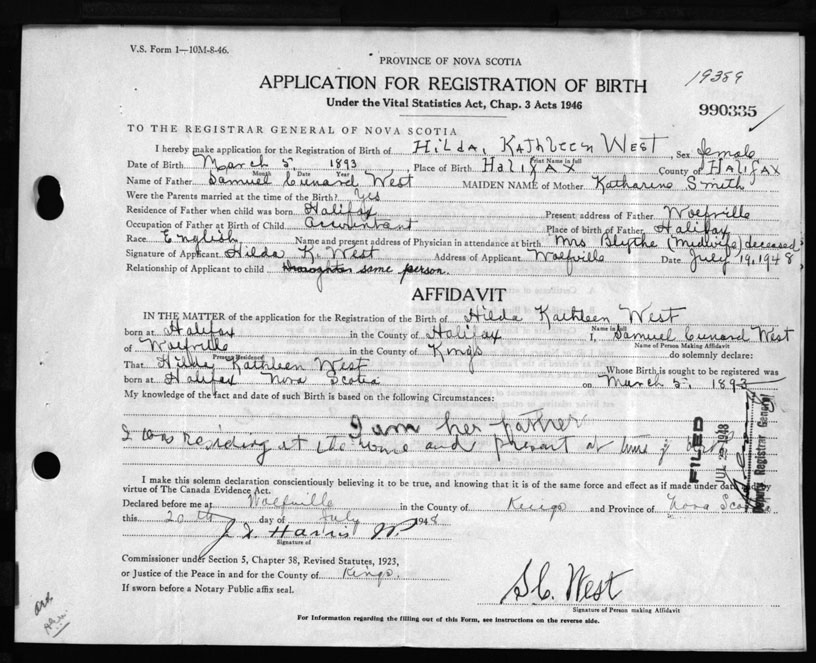 V.S. Form 1—10M-8-46.
PROVINCE OF NOVA SCOTIA
19359
APPLICATION FOR REGISTRATION OF BIRTH
Under the Vital Statistics Act, Chap. 3 Acts 1946
990335
TO THE REGISTRAR GENERAL OF NOVA SCOTIA
I hereby make application for the Registration of Birth of HILDA, KATHLEEN WEST Sex female
Print Name in full
Date of Birth March 5, 1893 Place of Birth HALIFAX County of HALIFAX
Month Date Year
Name of Father Samuel Cunard West MAIDEN NAME of Mother Katharine Smith
Were the Parents married at the time of the Birth? Yes
Residence of Father when child was born Halifax Present address of Father Wolfville
Occupation of Father at Birth of Child Accountant Place of birth of Father Halifax
Race English Name and present address of Physician in attendance at birth Mrs Blythe (Midwife) deceased
Signature of Applicant Hilda K. West Address of Applicant Wolfville Date July 19, 1948
Relationship of Applicant to child Daughter same person.
AFFIDAVIT
IN THE MATTER of the application for the Registration of the Birth of Hilda Kathleen West
Name in full
born at Halifax in the County of Halifax I, Samuel Cunard West
Name of Person Making Affidavit
of Wolfville in the County of Kings do solemnly declare:
Present Residence
That Hilda Kathleen West Whose Birth is sought to be registered was
born at Halifax Nova Scotia on March 5, 1893
My knowledge of the fact and date of such Birth is based on the following Circumstances:
I am her father
I was residing at the home and present at time of birth
FILED
JUL 21 1948
Deputy Registrar General
I make this solemn declaration conscientiously believing it to be true, and knowing that it is of the same force and effect as if made under oath by
virtue of The Canada Evidence Act.
Declared before me at Wolfville in the County of Kings and Province of Nova Sco
this 20th day of July 1948
J. Harris J.P.
Signature of
Commissioner under Section 5, Chapter 38, Revised Statutes, 1923,
or Justice of the Peace in and for the County of Kings.
If sworn before a Notary Public affix seal.
S.C. West
Signature of Person making Affidavit
For Information regarding the filling out of this Form, see instructions on the reverse side.